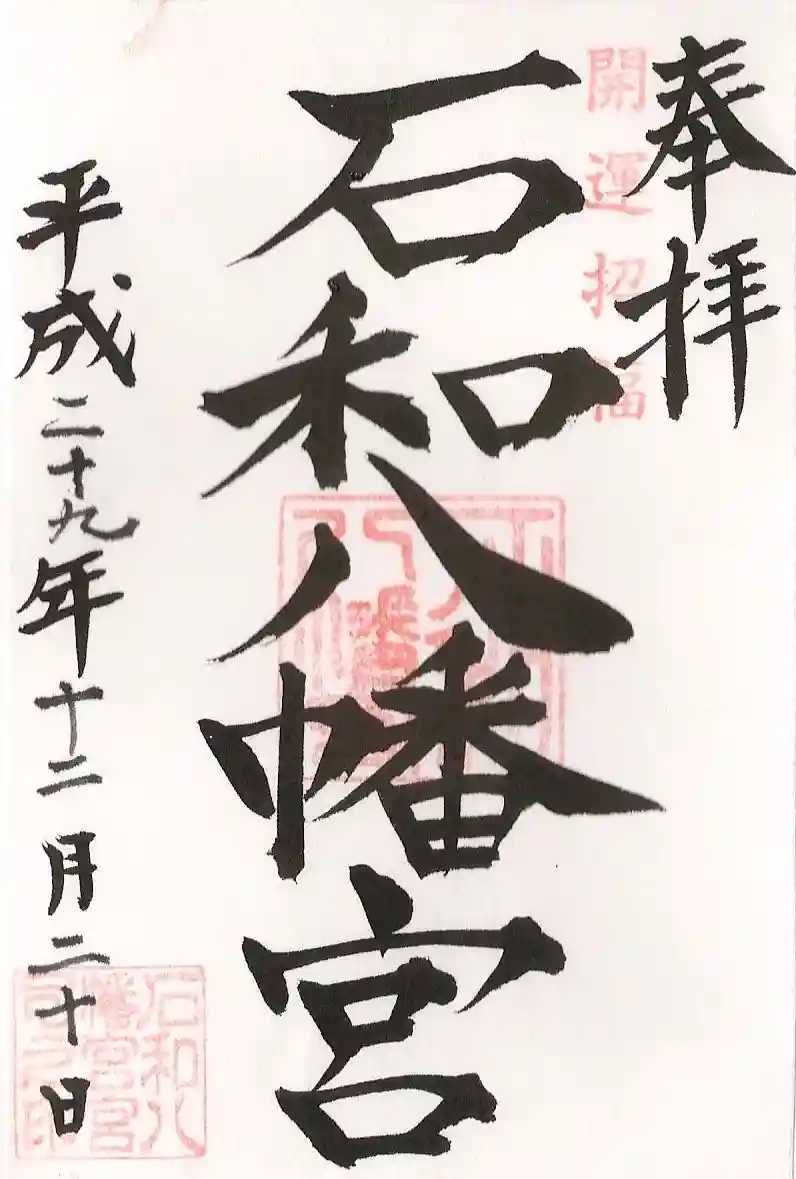 奉拝
開運招福
石和八幡宮
平成二十九年十二月二十日
石和八
幡宮宮
司之印